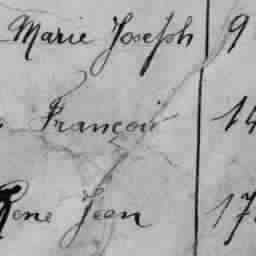 Marie Joseph 9
François 14
René Jean 17